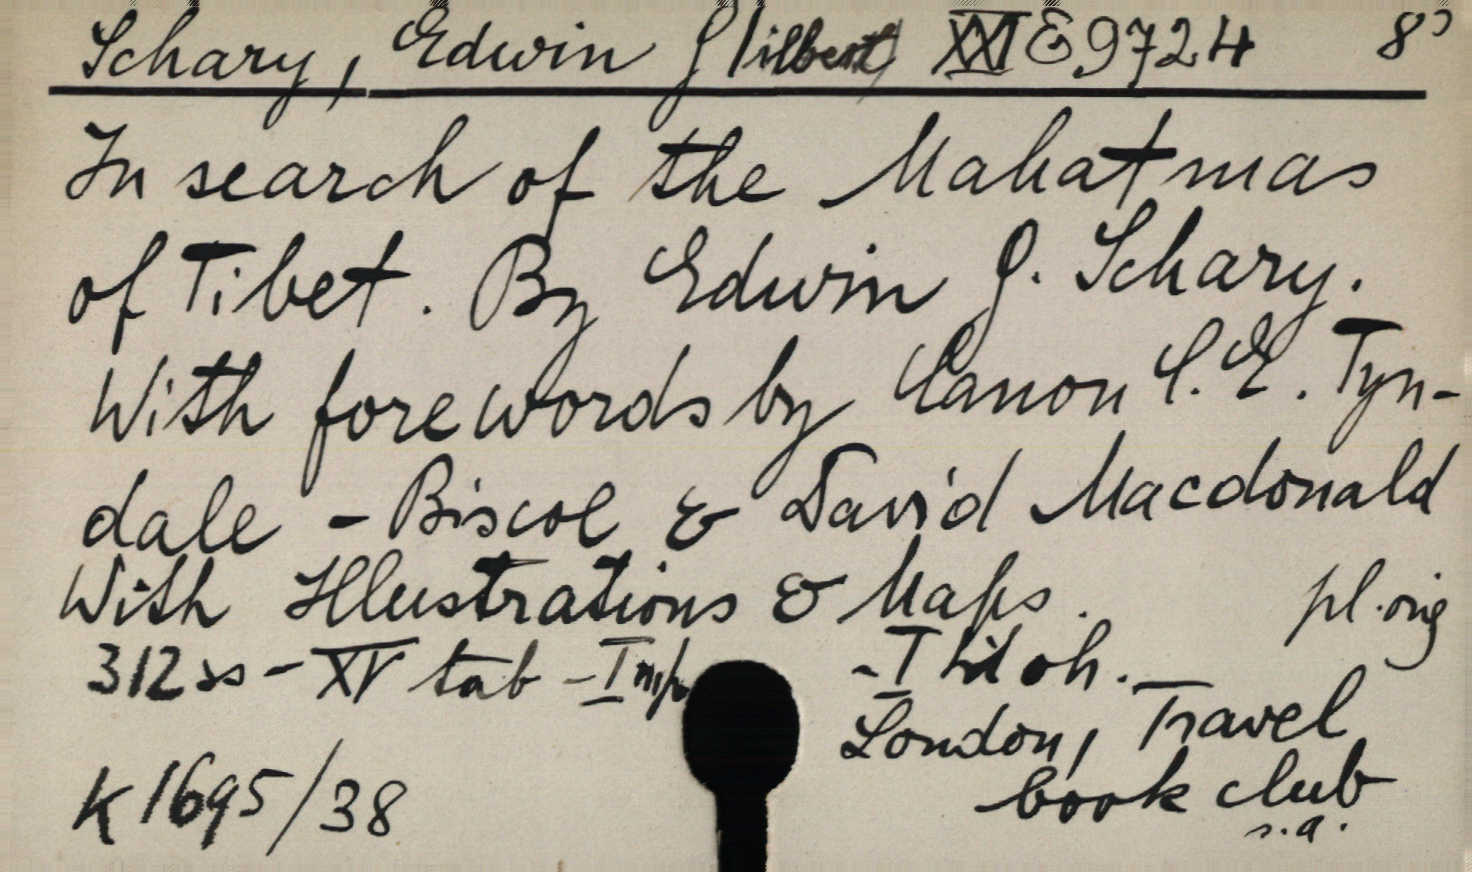 Schary, Edwin G[ilbert] XXI E 9724 8°
In search of the Mahatmas
of Tibet. By Edwin G. Schary.
With forewords by Canon C. E. Tyn-
dale - Biscoe & David Macdonald
With Illustrations & Maps. pl. orig
312 ss - XV tab - I - I
London, Travel
book club
s. a.
K 1695/38